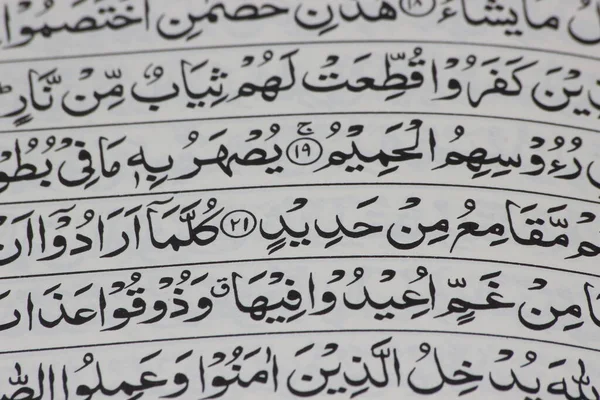 لُ مَا يَشَآءُ ١٨ هٰذٰنِ خَصْمٰنِ اخْتَصَمُوْا
ذِيْنَ كَفَرُوْا قُطِّعَتْ لَهُمْ ثِيَابٌ مِّنْ نَّارٍ
رُءُوْسِهِمُ الْحَمِيْمُ ۚ ١٩ يُصْهَرُ بِهٖ مَا فِيْ بُطُوْ
مْ مَّقَامِعُ مِنْ حَدِيْدٍ ٢١ كُلَّمَآ اَرَادُوْۤا اَنْ
ا مِنْ غَمٍّ اُعِيْدُوْا فِيْهَا ۗ وَذُوْقُوْا عَذَابَ
للّٰهَ يُدْخِلُ الَّذِيْنَ اٰمَنُوْا وَعَمِلُوا الصّٰ